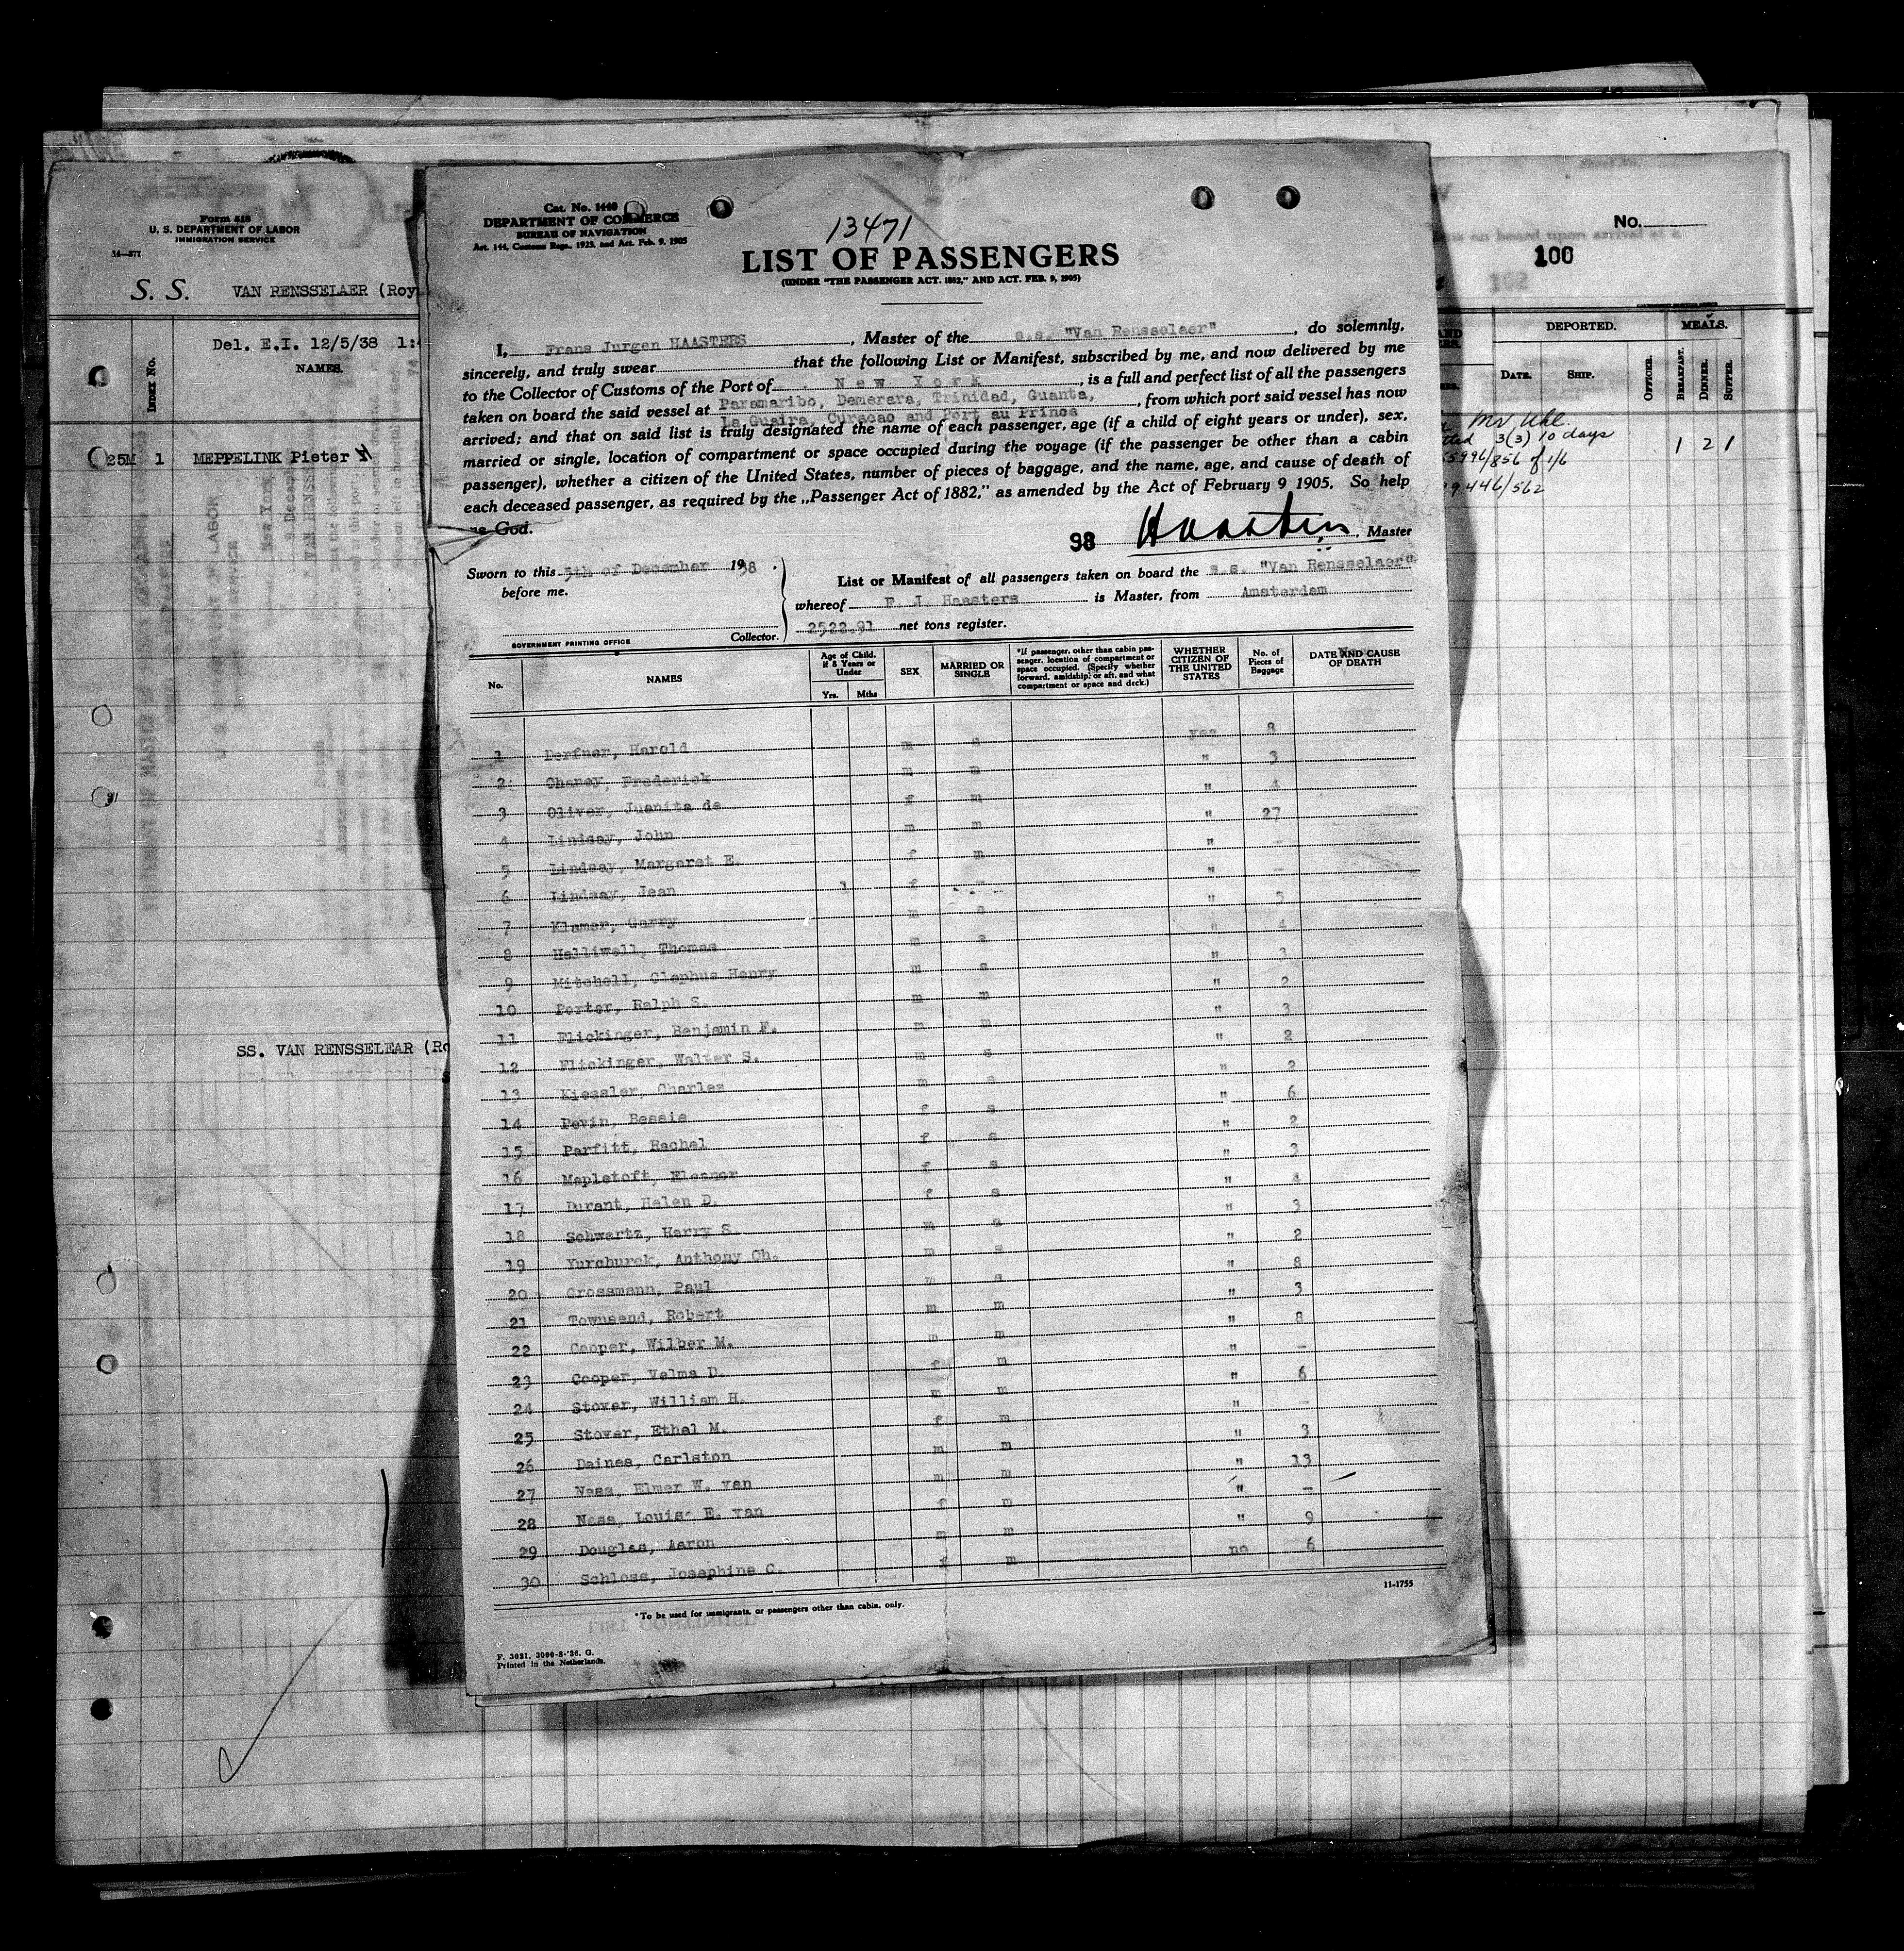 Form 618
U. S. DEPARTMENT OF LABOR
IMMIGRATION SERVICE
14—877
S. S. VAN RENSSELAER (Roy
Del. E.I. 12/5/38 1:4
INDEX No.
NAMES.
25M 1 MEPPELINK Pieter
SS. VAN RENSSELEAR (Ro
Cat. No. 1440
DEPARTMENT OF COMMERCE
BUREAU OF NAVIGATION
Art. 144, Customs Regs., 1923, and Act. Feb. 9, 1905
13471
LIST OF PASSENGERS
(UNDER "THE PASSENGER ACT. 1882," AND ACT. FEB. 9, 1905)
I, Frans Jurgen HAASTERS, Master of the s.s. "Van Rensselaer", do solemnly,
sincerely, and truly swear that the following List or Manifest, subscribed by me, and now delivered by me
to the Collector of Customs of the Port of New York, is a full and perfect list of all the passengers
taken on board the said vessel at Paramaribo, Demerara, Trinidad, Guanta, from which port said vessel has now
La Guaira, Curacao and Port au Prince
arrived; and that on said list is truly designated the name of each passenger, age (if a child of eight years or under), sex,
married or single, location of compartment or space occupied during the voyage (if the passenger be other than a cabin
passenger), whether a citizen of the United States, number of pieces of baggage, and the name, age, and cause of death of
each deceased passenger, as required by the „Passenger Act of 1882," as amended by the Act of February 9 1905. So help
God.
98 Haasters, Master
Sworn to this 5th of December 1938.
before me.
Collector.
GOVERNMENT PRINTING OFFICE
List or Manifest of all passengers taken on board the s.s. "Van Rensselaer"
whereof F. J. Haasters is Master, from Amsterdam
2522.91 net tons register.
No.
NAMES
Age of Child. if 8 Years or Under
Yrs. Mths
SEX
MARRIED OR SINGLE
*If passenger, other than cabin passenger, location of compartment or space occupied. (Specify whether forward, amidship, or aft, and what compartment or space and deck.)
WHETHER CITIZEN OF THE UNITED STATES
No. of Pieces of Baggage
DATE AND CAUSE OF DEATH
1 Derfner, Harold m s yes 8
2 Chaney, Frederick m m " 3
3 Oliver, Juanita de f m " 4
4 Lindsay, John m m " 27
5 Lindsay, Margaret E. f m " -
6 Lindsay, Jean 1 f - " -
7 Klamer, Garry m s " 5
8 Halliwell, Thomas m s " 4
9 Mitchell, Clephus Henry m s " 3
10 Porter, Ralph S. m m " 2
11 Flickinger, Benjamin F. m m " 3
12 Flickinger, Walter S. m s " 2
13 Kiessler, Charles m s " 2
14 Pevin, Bessie f s " 6
15 Parfitt, Rachel f s " 2
16 Mapletoft, Eleanor f s " 3
17 Durant, Helen D. f s " 4
18 Schwartz, Harry S. m s " 3
19 Yurchurck, Anthony Ch. m s " 2
20 Grossmann, Paul m s " 8
21 Townsend, Robert m m " 3
22 Cooper, Wilber M. m m " 8
23 Cooper, Velma D. f m " -
24 Stover, William H. m m " 6
25 Stover, Ethel M. f m " -
26 Daines, Carlston m m " 3
27 Ness, Elmer W. van m m " 13
28 Ness, Louise E. van f m " -
29 Douglas, Aaron m m " 9
30 Schloss, Josephine C. f m no 6
*To be used for immigrants, or passengers other than cabin, only.
11-1755
F. 3021. 3000-8-'36. G.
Printed in the Netherlands.
No.
100
DEPORTED.
MEALS.
DATE. SHIP. OFFICER. BREAKFAST. DINNER. SUPPER.
Mr Uhl
tted 3(3) 10 days
5996/856 of 1/6
9446/562
1 2 1